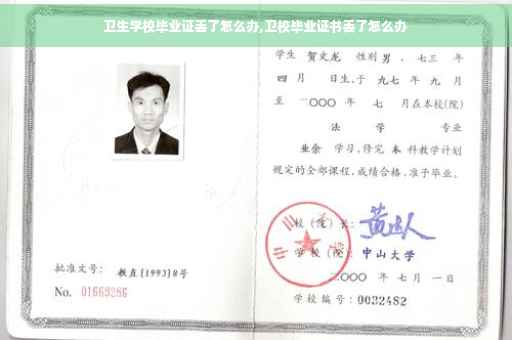 卫生学校毕业证丢了怎么办,卫校毕业证书丢了怎么办
学生 贺文龙 性别 男 , 七三 年
四 月 日生,于 九七 年 九 月
至 二〇〇〇 年 七 月在本校(院)
法 学 专业
业余 学习,修完 本 科教学计划
规定的全部课程,成绩合格,准予毕业。
校(院)长:
学校(院): 中山大学
二〇〇〇 年 七 月 一 日
批准文号: 教直[1993]8号
No. 01669286
学校编号: 0032482